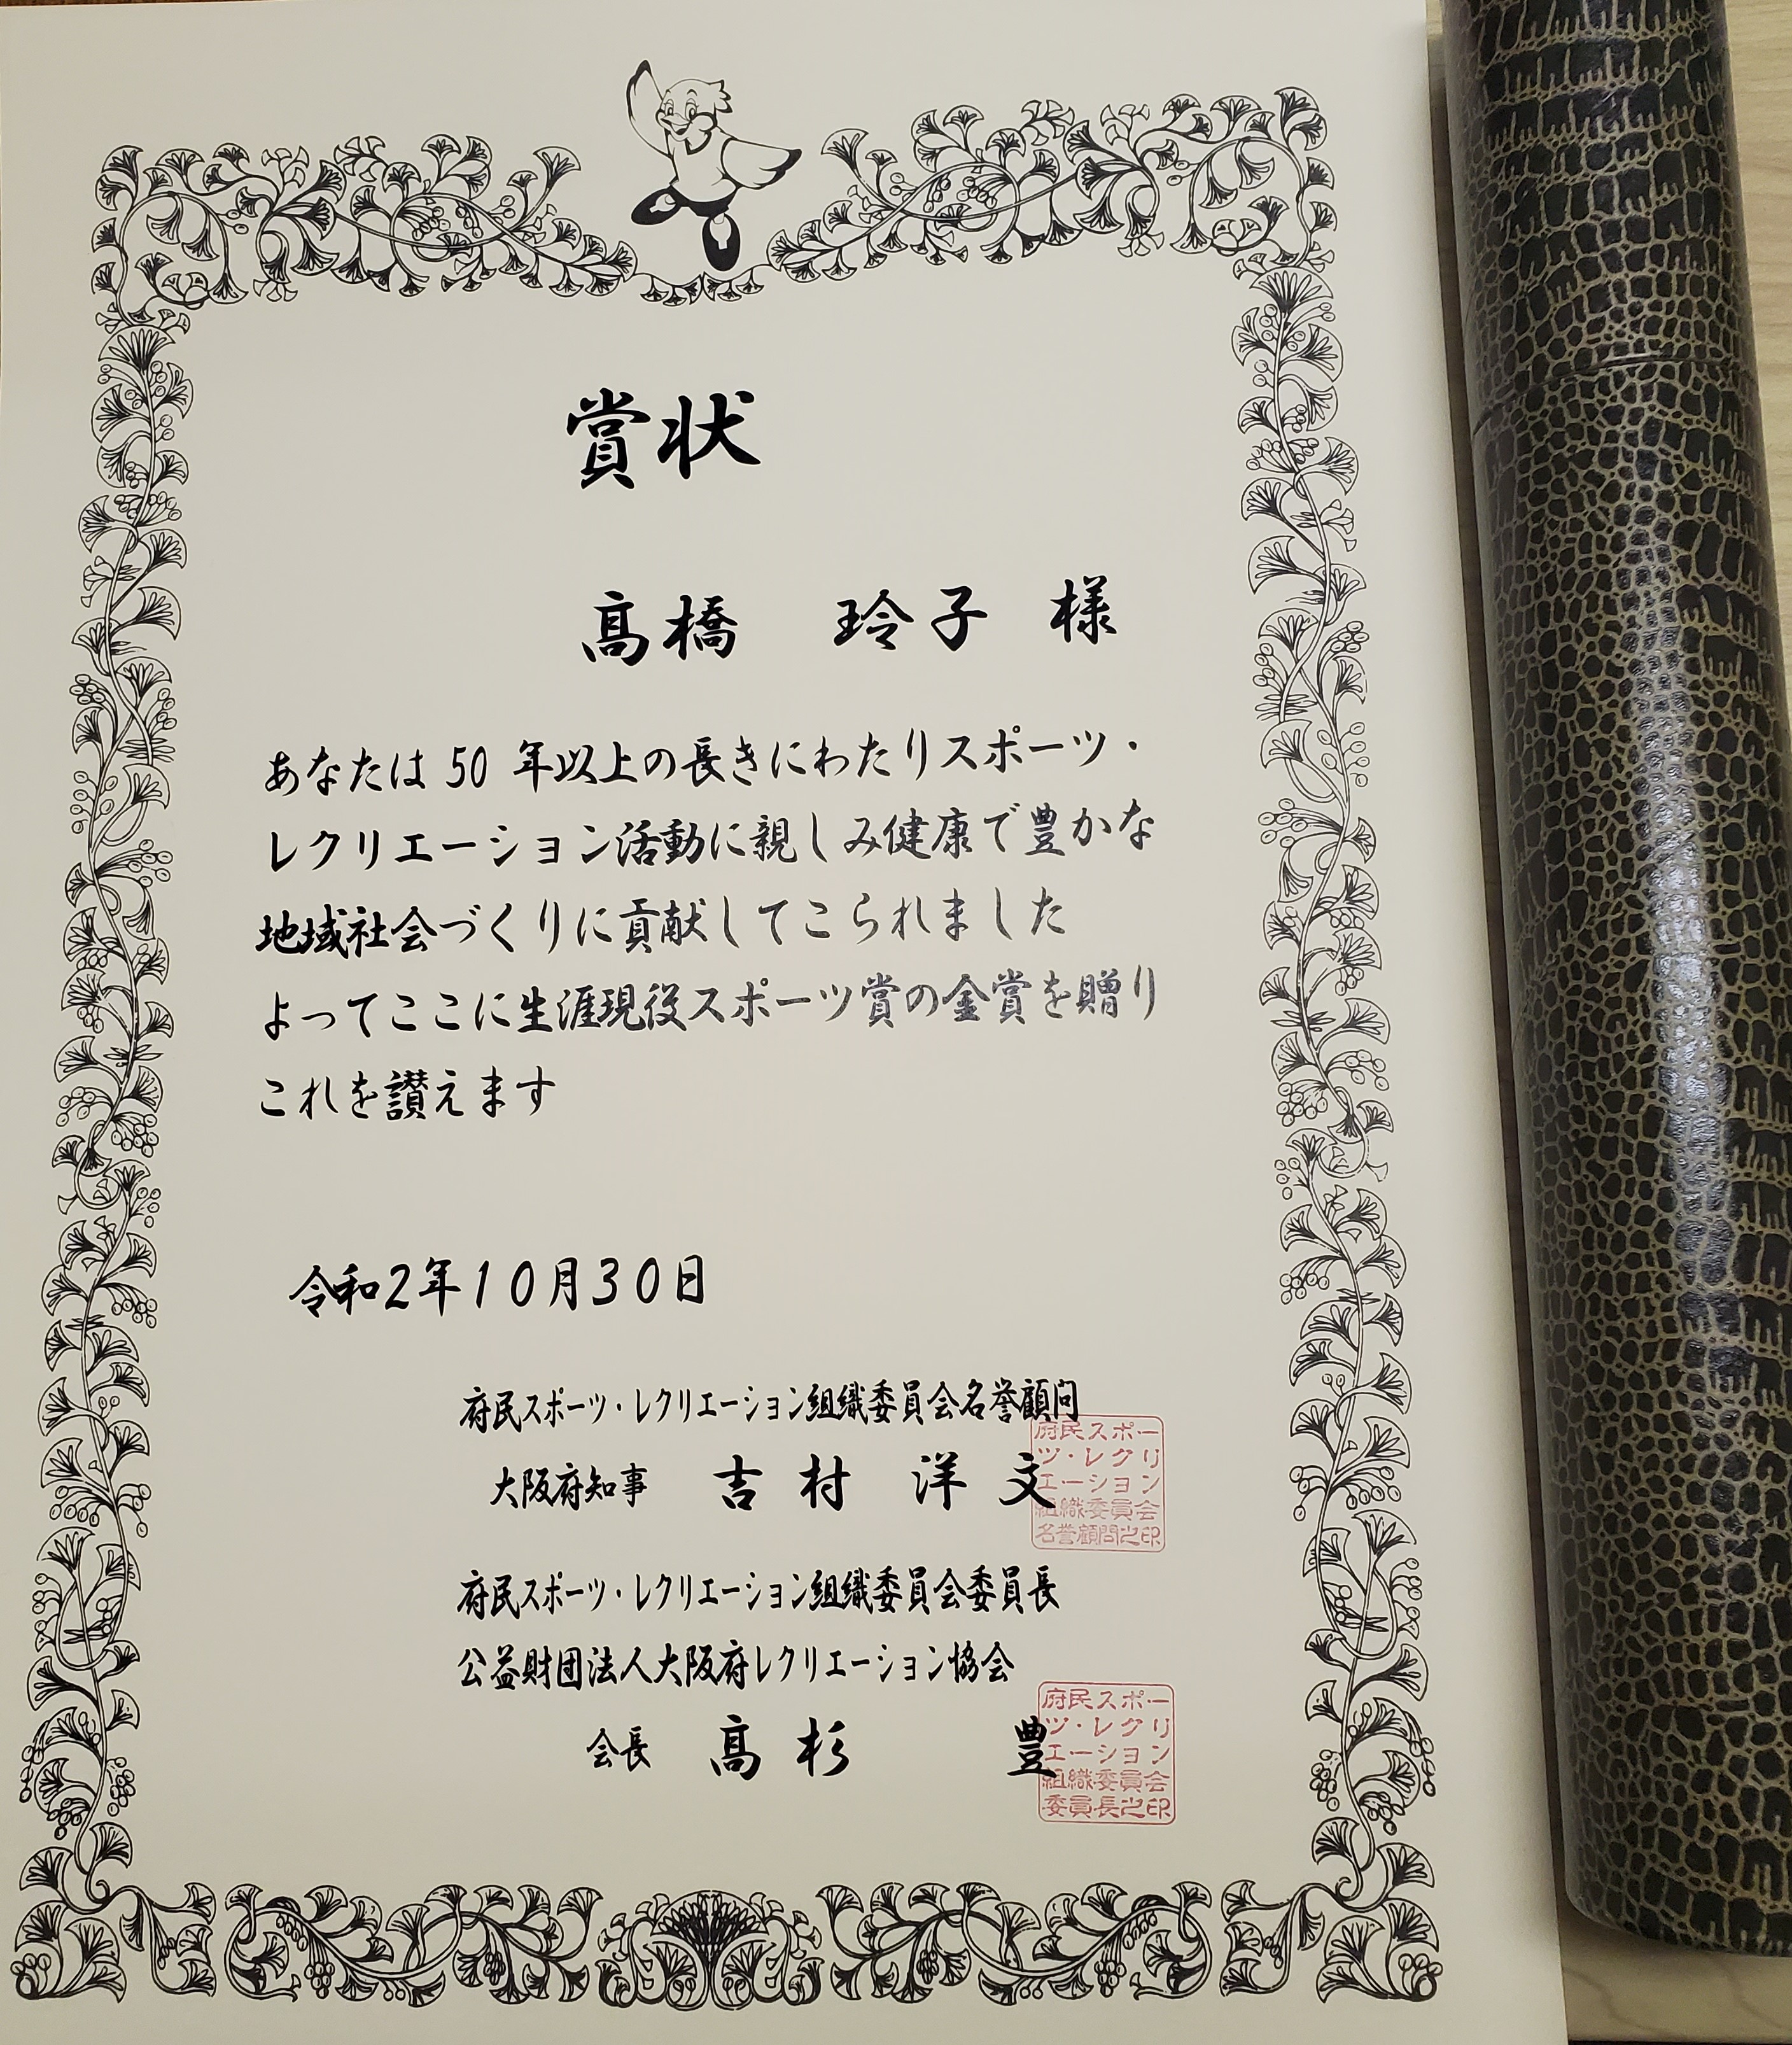 賞状
髙橋 玲子 様
あなたは 50 年以上の長きにわたりスポーツ・
レクリエーション活動に親しみ健康で豊かな
地域社会づくりに貢献してこられました
よってここに生涯現役スポーツ賞の金賞を贈り
これを讃えます
令和2年10月30日
府民スポーツ・レクリエーション組織委員会名誉顧問
大阪府知事 吉村 洋文
府民スポー
ツ・レクリ
エーション
組織委員会
名誉顧問之印
府民スポーツ・レクリエーション組織委員会委員長
公益財団法人大阪府レクリエーション協会
会長 髙杉 豊
府民スポー
ツ・レクリ
エーション
組織委員会
委員長之印